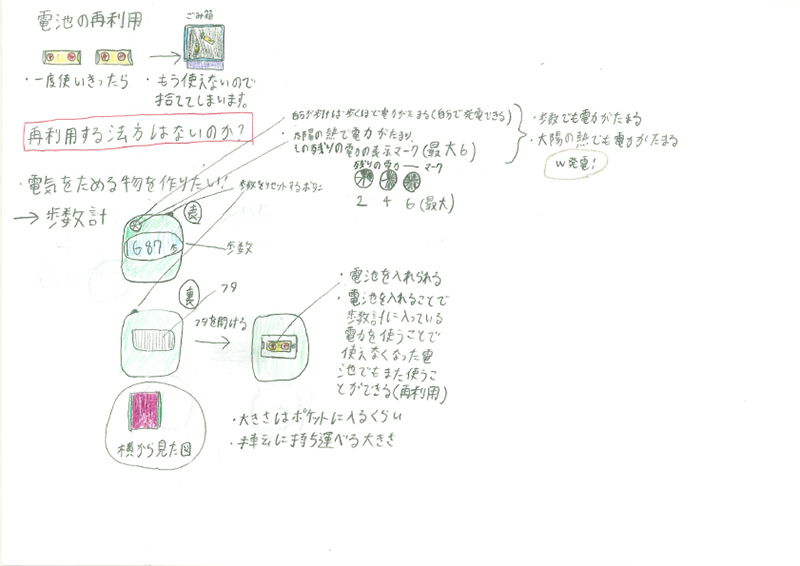 電池の再利用
ごみ箱
・一度使いきったら
・もう使えないので
捨ててしまいます。
再利用する法方はないのか?
自分が歩けば歩くほど電力がたまる(自分で発電できる)
・太陽の熱で電力がたまり、
その残りの電力の表示マーク(最大6)
・歩数でも電力がたまる
・太陽の熱でも電力がたまる
W発電!
残りの電力 マーク
2 4 6(最大)
・電気をためる物を作りたい!!
歩数をリセットするボタン
→歩数計
687
歩数
裏
フタ
フタを開ける
・電池を入れられる
・電池を入れることで
歩数計に入っている
電力を使うことで
使えなくなった電
池でもまた使うこ
とができる(再利用)
横から見た図
・大きさはポケットに入るくらい
・手軽に持ち運べる大きさ